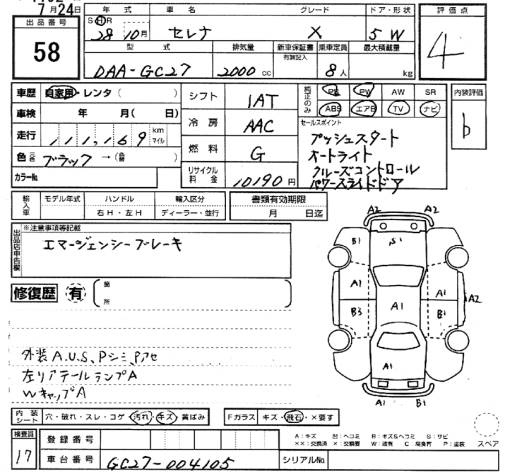 7月24日
出品番号 58
年式 SH 28年10月 車名 セレナ グレード X ドア・形状 5 W
評価点 4
型式 DAA-GC27 排気量 2000cc 新車保証書 有無記入 乗車定員 8人 最大積載量 kg
車歴 自家用・レンタ( )
車検 年 月( 日)
走行 111,169 km マイル
色 元色 ブラック→(色替 )
カラーNo.
シフト 1AT
冷房 AAC
燃料 G
リサイクル料金 10190円
純正のみ PS PW AW SR
ABS エアB TV ナビ
内装評価 b
セールスポイント
プッシュスタート
オートライト
クルーズコントロール
パワースライドドア
輸入車 モデル年式 ハンドル 輸入区分 書類有効期限
年 右H・左H ディーラー・並行 月 日迄
出品店申告欄 ※注意事項等記載
エマージェンシーブレーキ
修復歴 有 箇所
外装A.U.S、Pシミ、Pアセ
左リアテールランプA
WキャップA
A2 A2
B1 S1 B1
A1 A1 A1 A2
B3 B1
A2 A2
内装シート 穴・破れ・スレ・コゲ・汚れ・キズ・黄ばみ
Fガラス キズ・飛石・×要す
スペア
検査員 17
登録番号
車台番号 GC27-004105 シリアルNo.